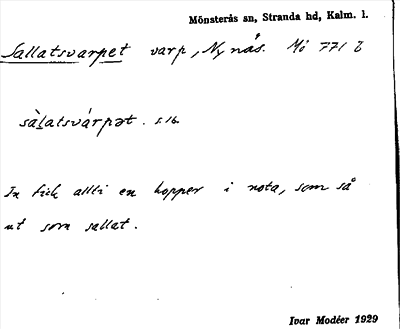 Mönsterås sn, Stranda hd, Kalm. l.
Sallatsvarpet varp, Nynås. Mö 771 b
sàlatsvárpət . s. 16.
In fick allti en hopper i nota, som så
ut som sallat.
Ivar Modéer 1929